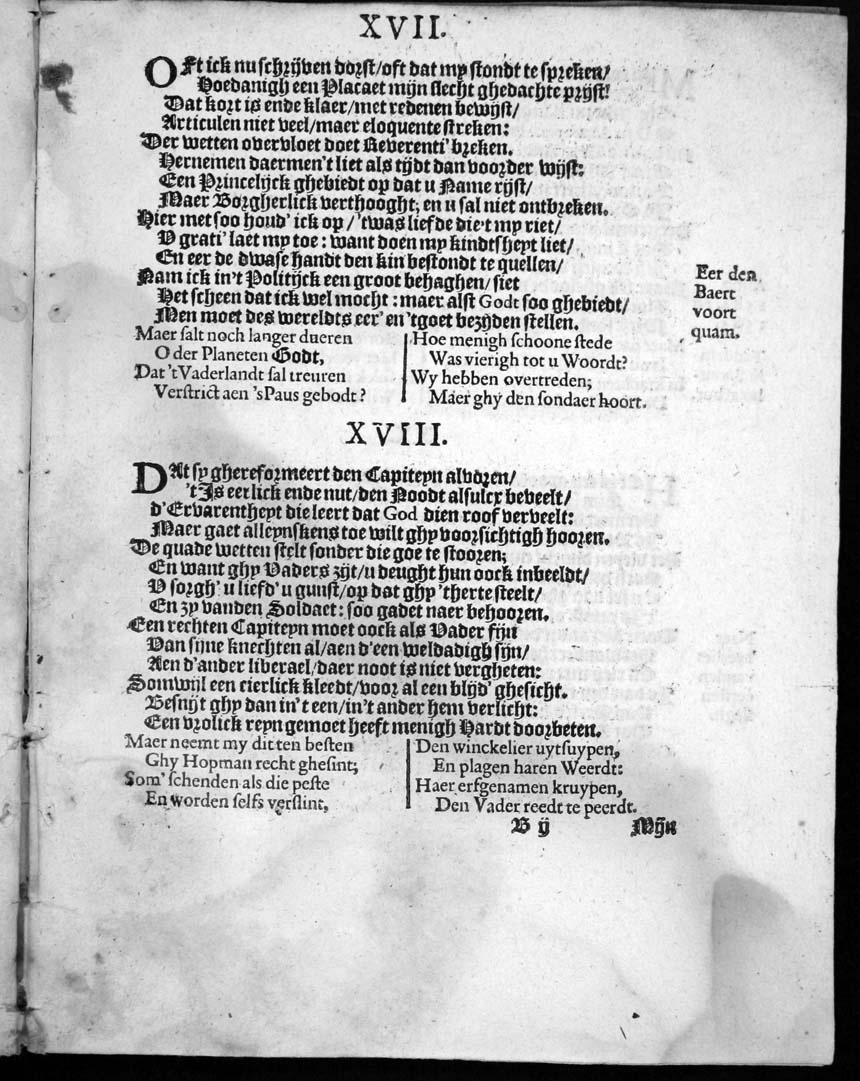 XVII.
OFt ick nu schrijven dorst/oft dat my stondt te spreken/
Hoedanigh een Placaet mijn slecht ghedachte prijst!
Dat kort is ende klaer/met redenen bewijst/
Articulen niet veel/maer eloquente streken:
Der wetten overvloet doet Reverenti' breken.
Hernemen daermen't liet als tijdt dan voorder wijst:
Een Princelijck ghebiedt op dat u Name rijst/
Maer Borgherlick verthooght; en u sal niet ontbreken.
Hier met soo houd' ick op/'twas liefde die't my riet/
V grati' laet my toe: want doen my kindtsheyt liet/
En eer de dwase handt den kin bestondt te quellen/
Nam ick in't Politijck een groot behaghen/siet
Het scheen dat ick wel mocht: maer alst Godt soo ghebiedt/
Men moet des wereldts eer' en 'tgoet bezijden stellen.
Eer den
Baert
voort
quam.
Maer salt noch langer dueren
O der Planeten Godt,
Dat 't Vaderlandt sal treuren
Verstrict aen 'sPaus gebodt?
Hoe menigh schoone stede
Was vierigh tot u Woordt?
Wy hebben overtreden;
Maer ghy den sondaer hoort.
XVIII.
DAt sy ghereformeert den Capiteyn alvoren/
't Is eerlick ende nut/den Noodt alsulcx beveelt/
d'Ervarentheyt die leert dat God dien roof verveelt:
Maer gaet alleynskens toe wilt ghy voorsichtigh hooren.
De quade wetten stelt sonder die goe te stooren;
En want ghy Vaders zijt/u deught hun oock inbeeldt/
V sorgh' u liefd' u gunst/op dat ghy 'therte steelt/
En zy vanden Soldaet: soo gadet naer behooren.
Een rechten Capiteyn moet oock als Vader sijn
Van sijne knechten al/aen d'een weldadigh sijn/
Aen d'ander liberael/daer noot is niet vergheten:
Somwijl een cierlick kleedt/voor al een blijd' ghesicht.
Besnijt ghy dan in't een/in't ander hem verlicht:
Een vrolick reyn gemoet heeft menigh Hardt doorbeten.
Maer neemt my dit ten besten
Ghy Hopman recht ghesint;
Som' schenden als die peste
En worden selfs verslint,
Den winckelier uytsuypen,
En plagen haren Weerdt:
Haer erfgenamen kruypen,
Den Vader reedt te peerdt.
B ij
Mijn